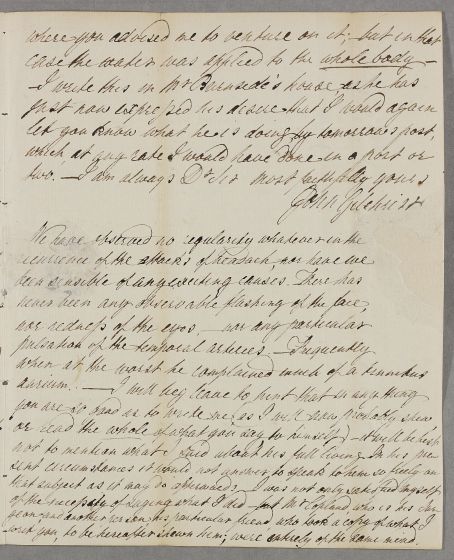 where you advised me to venture on it; but in that
case the water was applied to the whole body
– I write this in Mr Burnside's house, as he has
just now expressed his desire that I would again
let you know what he is doing by tomorrow's post,
which, at any rate I would have done in a Post or
two. – I am always Dr Sir most faithfully yours
John Gilchrist
We have observed no regularity whatever in the
recurrence of the attacks of headach, nor have we
been sensible of any exciting causes. There has
never been any observable flushing of the face,
nor redness of the eyes, nor any particular
pulsation of the temporal arteries. – Frequently
when at the worst he complained much of a tinnitus
aurium. – I will beg leave to hint that in any thing
you are so good as to write me, as I will now probably shew
or read the whole of what you say to himself) – it will be best
not to mention what I said about his full living. In his pre
sent circumstances it would not answer to speak to him so freely on
that subject as it may do afterwards. – I was not only satisfied myself
of the necessity of urging what I did – but Mr Copland, who is his Sur
geon and another person his particular friend who took a copy of what I
wrote you, to be hereafter shewn him, were entirely of the same mind.